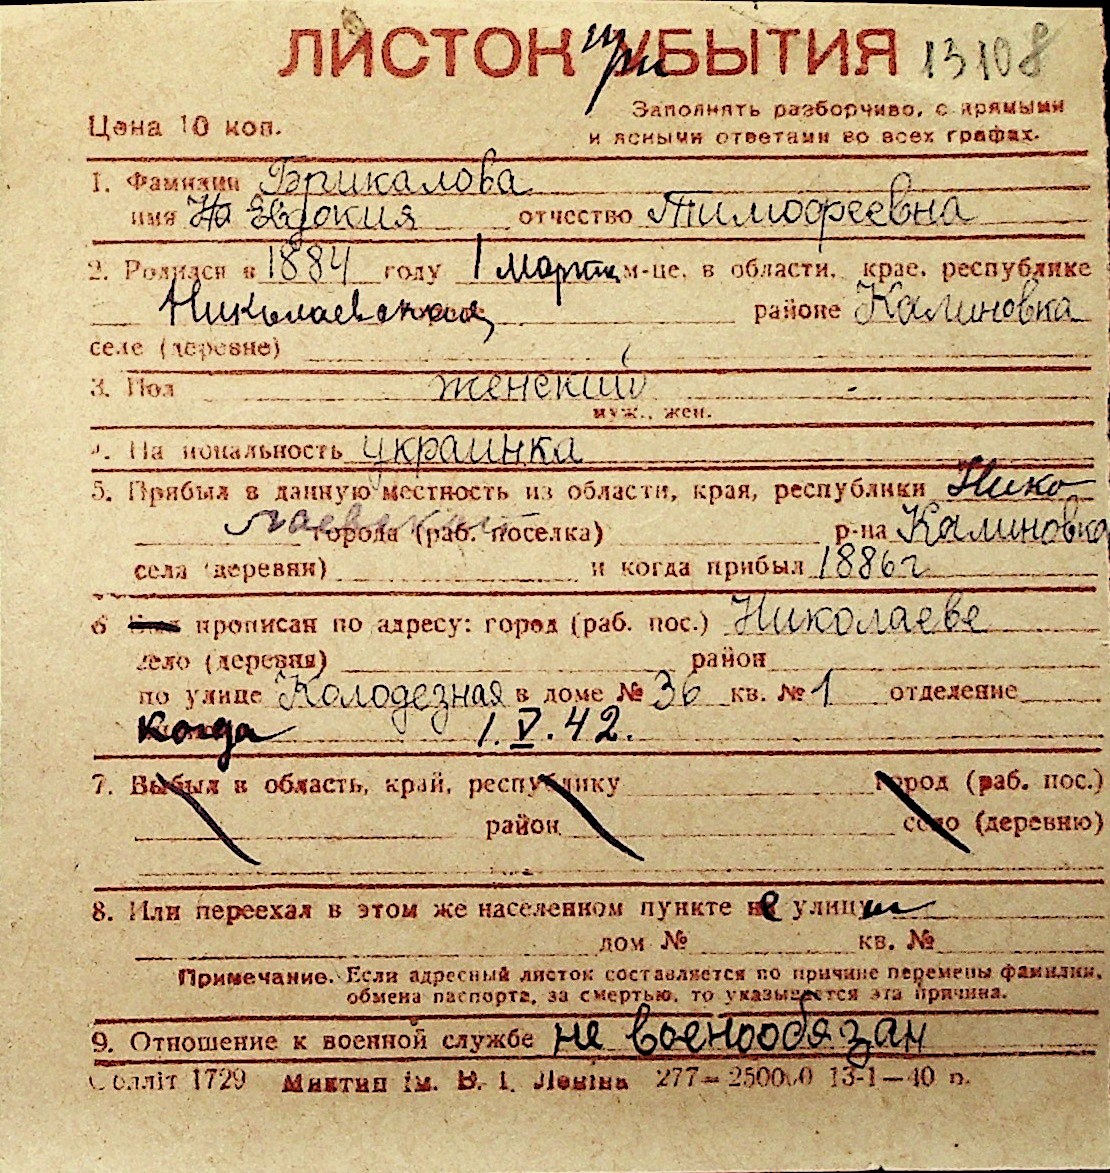 ЛИСТОК при УБЫТИЯ 13108
Цена 10 коп.
Заполнять разборчиво, с прямыми
и ясными ответами во всех графах.
1. Фамилия Брикалова
имя Евдокия отчество Тимофеевна
2. Родился в 1884 году 1 марта м-це, в области, крае, республике
Николаевская районе Калиновка
селе (деревне)
3. Пол женский
муж., жен.
4. Национальность украинка
5. Прибыл в данную местность из области, края, республики Нико
лаевской города (раб. поселка) р-на Калиновка
села (деревни) и когда прибыл 1886 г
6 прописан по адресу: город (раб. пос.) Николаеве
село (деревня) район
по улице Колодезная в доме № 36 кв. № 1 отделение
когда 1.V.42.
7. Выбыл в область, край, республику город (раб. пос.)
район село (деревню)
8. Или переехал в этом же населенном пункте не улицы
дом № кв. №
Примечание. Если адресный листок составляется по причине перемены фамилии,
обмена паспорта, за смертью, то указывается эта причина.
9. Отношение к военной службе не военообязан
Облліт 1729 Миктип ім. В. І. Леніна 277—250000 13-1—40 п.